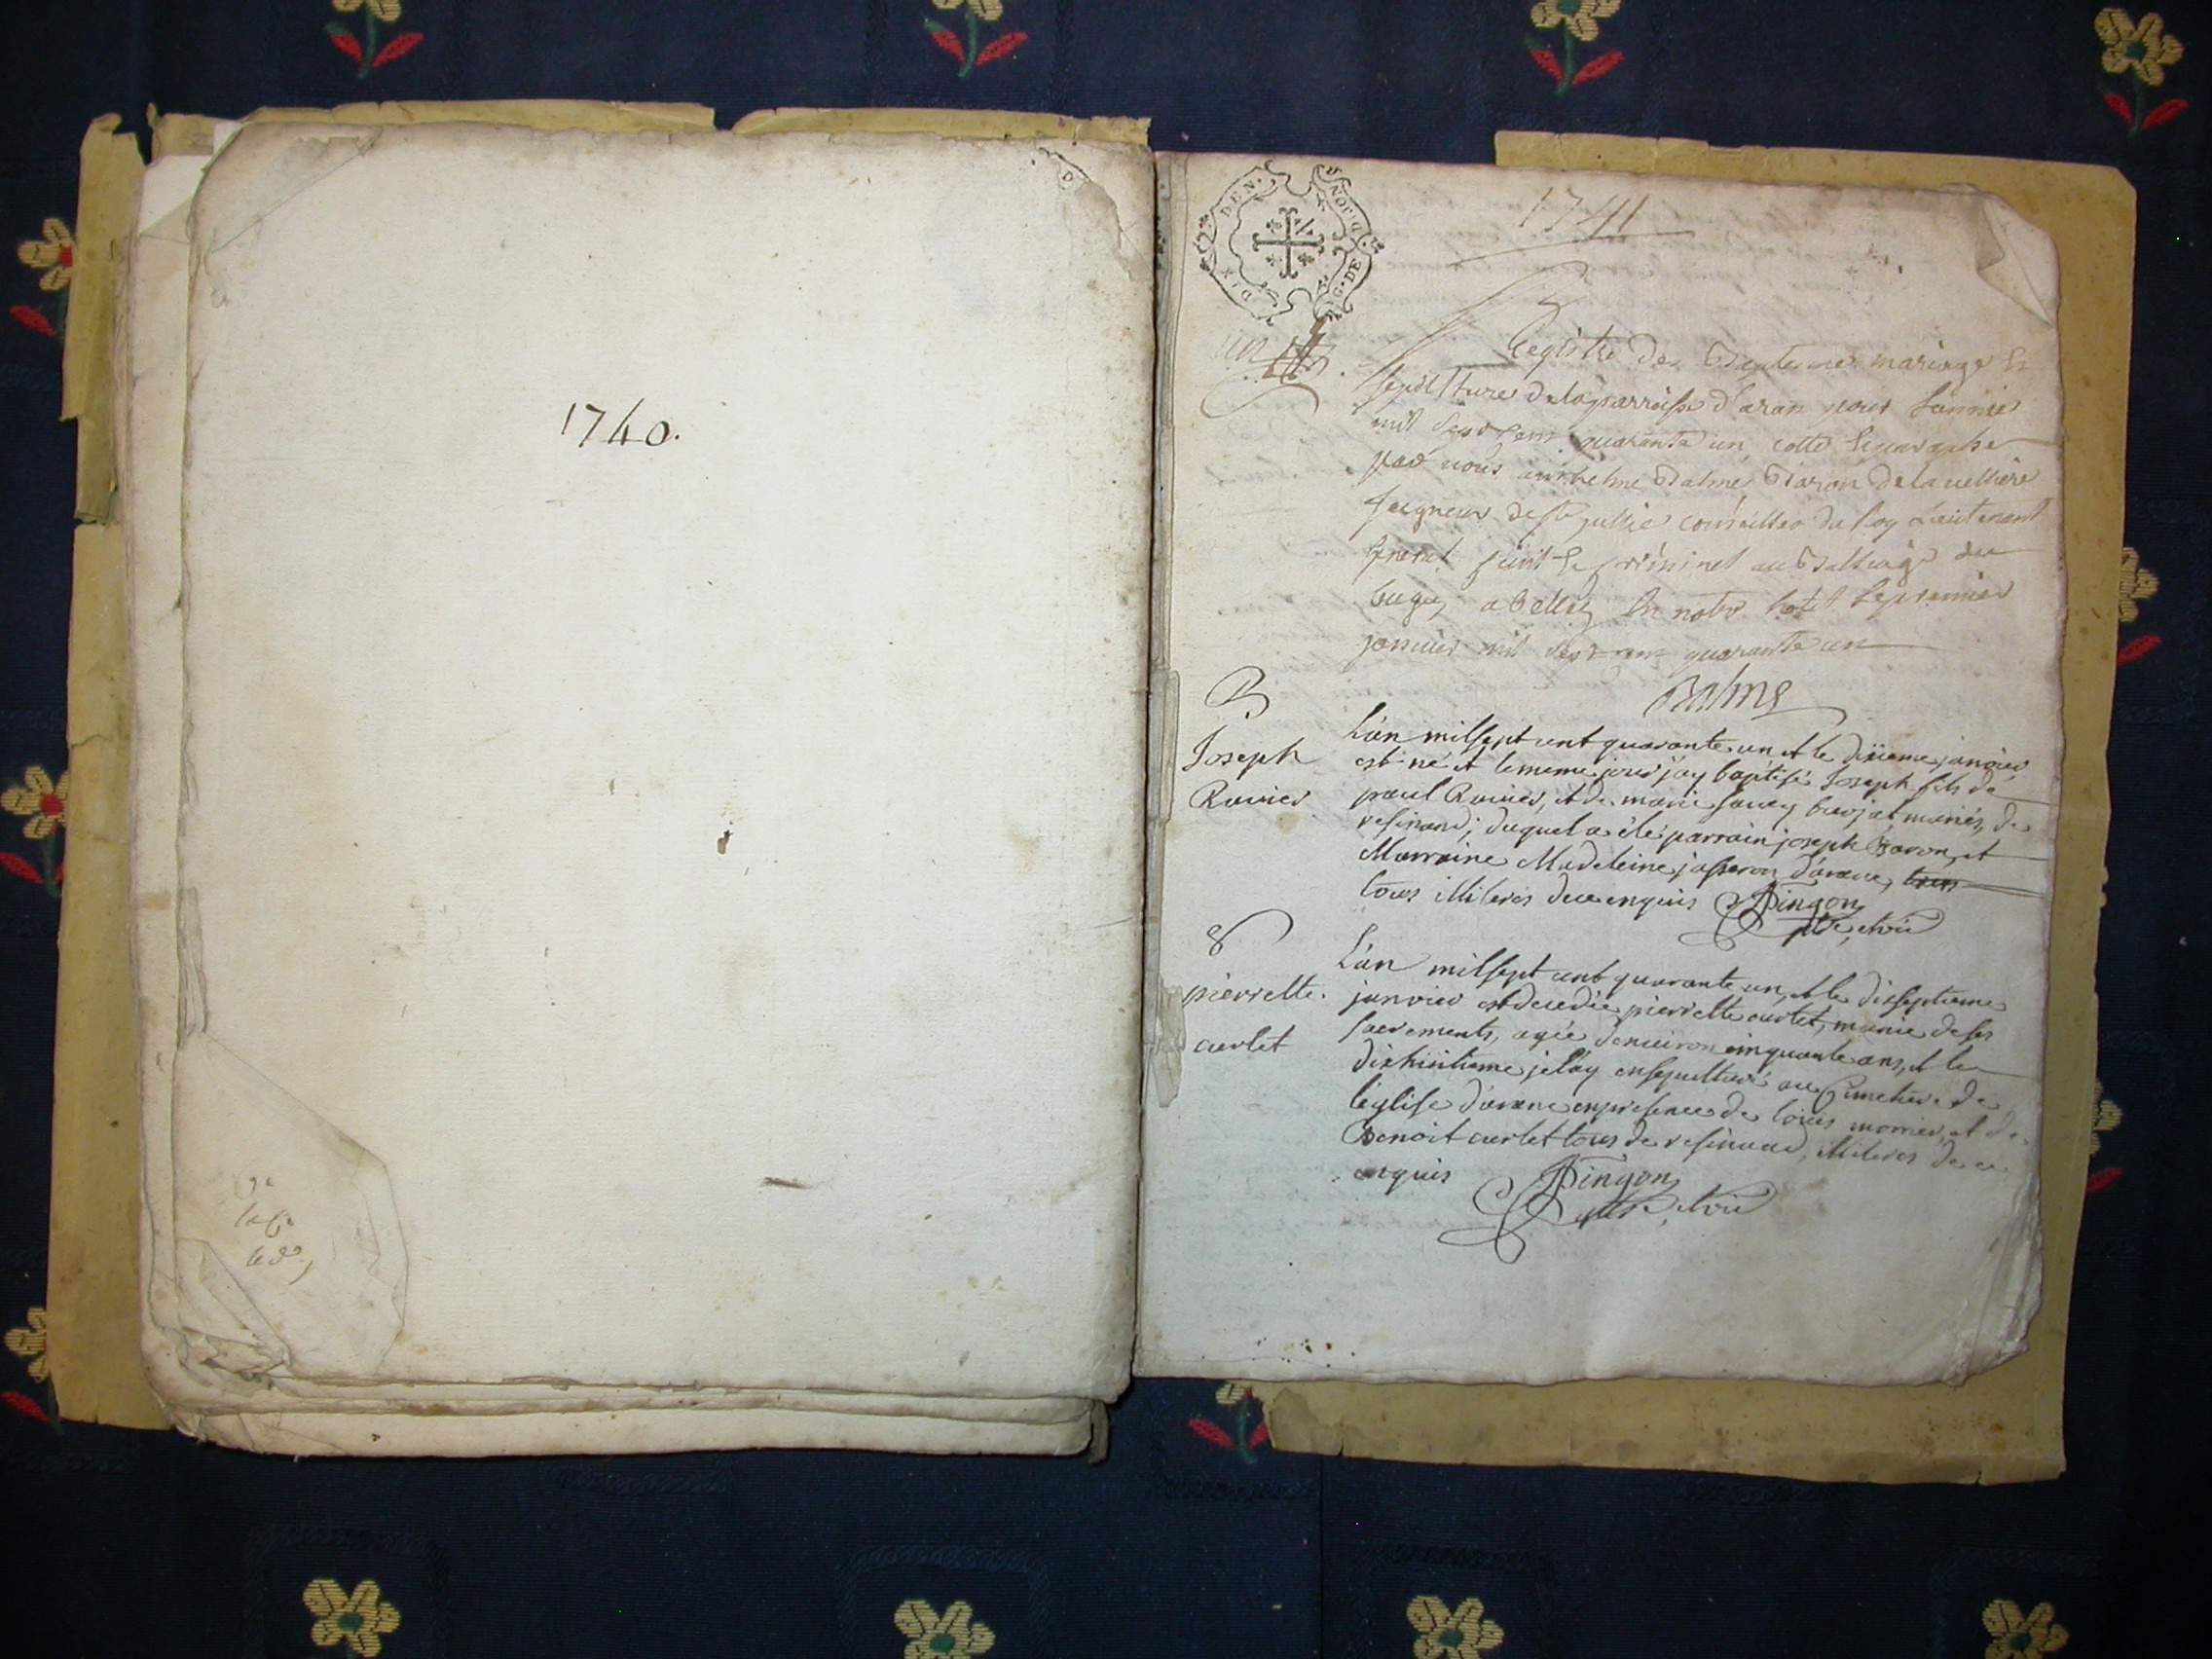 1740.
1741
DEN.
G. DE
DIX
un
Registre des Baptemes mariage et
sepulture de la parroisse d'aran pour l'annee
mil sept cent quarante un, cotté et paraphé
par nous anthelme Balme Baron de la velliere
seigneur de ste jullie conseiller du Roy Lieutenant
general civil et criminel au Balliage du
bugey a belley en notre hotel le premier
janvier mil sept cent quarante un
Balme
B
Joseph
Ravier
L'an mil sept cent quarante un et le dixieme janvier
est né et le meme jour j'ay baptisé Joseph fils de
paul Ravier, et de marie savey brojat mariés, de
resinand; duquel a été parrain joseph Baron, et
Marraine Madeleine jasseron d'arane,
tous illiteres de ce enquis Dingon
S
pierrette
curlet
L'an mil sept cent quarante un, et le dixseptieme
janvier est decedée pierrette curlet, munie de ses
sacrements, agée d'environ cinquante ans, et le
dixhuitieme je l'ay ensepulturé au Cimetiere de
l'eglise d'arane en presence de louis morier, et de
Benoit curlet tous de resinand, illiteres de ce
enquis Dingon